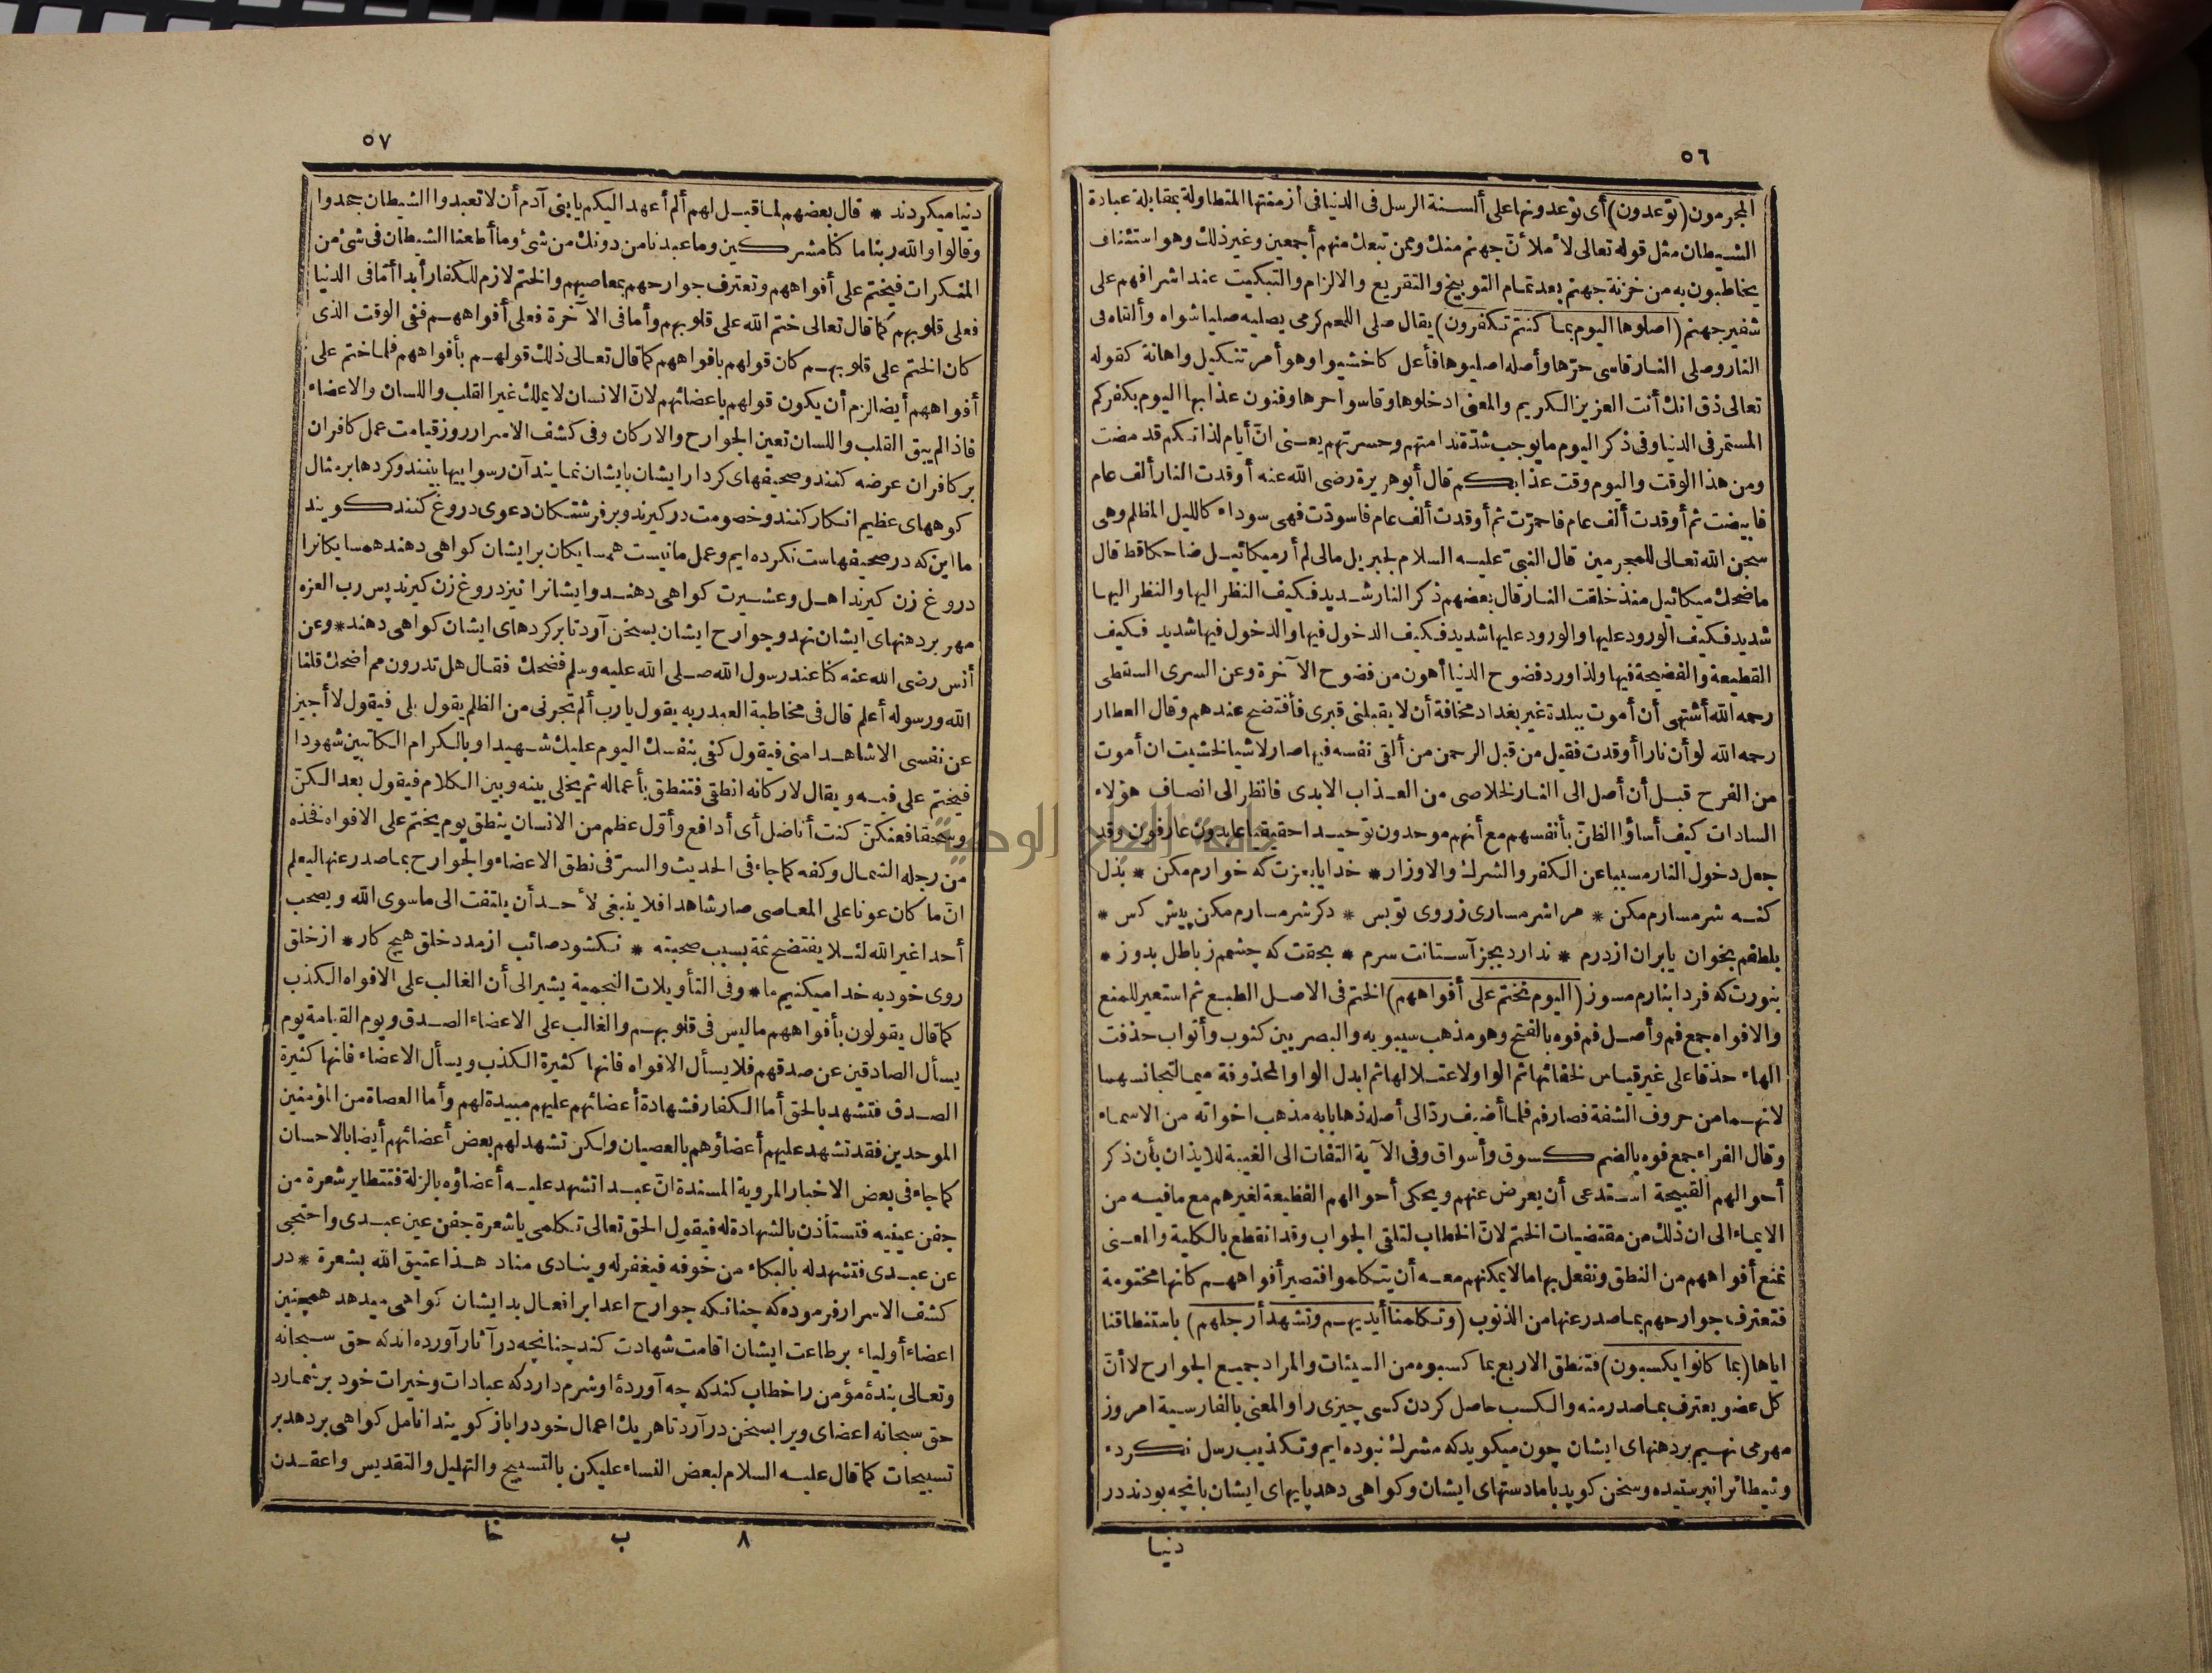 ٥٦
المجرمون (توعدون) أى توعدونها على ألسنة الرسل فى الدنيا فى أزمنتها المتطاولة بمقابلة عبادة
الشيطان مثل قوله تعالى لأملأنّ جهنم منك وممن تبعك منهم أجمعين وغير ذلك وهو استئناف
يخاطبون به من خزنة جهنم بعد تمام التوبيخ والتقريع والالزام والتبكيت عند اشرافهم على
شفير جهنم (اصلوها اليوم بما كنتم تكفرون) يقال صلى اللحم كرمى يصليه صليا شواه وألقاه فى
النار وصلى النار قاسى حرّها وأصله اصليوها فأعل كاخشيوا وهو أمر تنكيل واهانة كقوله
تعالى ذق انك أنت العزيز الكريم والمعنى ادخلوها وقاسوا حرها وفنون عذابها اليوم بكفركم
المستمر فى الدنيا وفى ذكر اليوم ما يوجب شدّة ندامتهم وحسرتهم يعنى انّ أيام لذاتكم قد مضت
ومن هذا الوقت واليوم وقت عذابكم قال أبو هريرة رضى الله عنه أوقدت النار ألف عام
فابيضت ثم أوقدت ألف عام فاحمرّت ثم أوقدت ألف عام فاسودّت فهى سوداء كالليل المظلم وهى
سجن الله تعالى للمجرمين قال النبىّ عليه السلام لجبريل مالى لم أر ميكائيل ضاحكا قط قال
ماضحك ميكائيل منذ خلقت النار قال بعضهم ذكر النار شديد فكيف النظر اليها والنظر اليها
شديد فكيف الورود عليها والورود عليها شديد فكيف الدخول فيها والدخول فيها شديد فكيف
القطيعة والفضيحة فيها ولذا ورد فضوح الدنيا أهون من فضوح الآخرة وعن السرى السقطى
رحمه الله أشتهى أن أموت ببلدة غير بغداد مخافة أن لا يقبلنى قبرى فأفتضح عندهم وقال العطار
رحمه الله لو أن نارا أوقدت فقيل من قبل الرحمن من ألقى نفسه فيها صار لاشيا لخشيت ان أموت
من الفرح قبل أن أصل الى النار لخلاصى من العذاب الابدى فانظر الى انصاف هؤلاء
السادات كيف أساؤا الظنّ بأنفسهم مع أنهم موحدون توحيدا حقيقيا عابدون عارفون وقد
جعل دخول النار مسببا عن الكفر والشرك والاوزار * خدايا بعزت كه خوارم مكن * بذل
كنه شرمسارم مكن * مرا شرمسارى ز روى تو بس * دكر شرمسارم مكن پيش كس *
بلطفم بخوان يا بران از درم * ندارد بجز آستانت سرم * بحقت كه چشمم ز باطل بدوز *
بنورت كه فردا بنارم مسوز (اليوم نختم على أفواههم) الختم فى الاصل الطبع ثم استعير للمنع
والافواه جمع فم وأصل فم فوه بالفتح وهو مذهب سيبويه والبصريين كثوب وأثواب حذفت
الهاء حذفا على غير قياس لخفائها ثم الواو لاعتلالها ثم ابدل الواو المحذوفة ميما لتجانسهما
لانهما من حروف الشفة فصار فم فلما أضيف ردّ الى أصله ذهابا به مذهب اخواته من الاسماء
وقال الفراء جمع فوه بالضم كسوق وأسواق وفى الآية التفات الى الغيبة للايذان بأن ذكر
أحوالهم القبيحة استدعى أن يعرض عنهم ويحكى أحوالهم الفظيعة لغيرهم مع ما فيه من
الايماء الى ان ذلك من مقتضيات الختم لانّ الخطاب لتلقى الجواب وقد انقطع بالكلية والمعنى
نمنع أفواههم من النطق ونفعل بها ما لا يمكنهم معه أن يتكلموا فتصير أفواههم كانها مختومة
فتعترف جوارحهم بما صدر عنها من الذنوب (وتكلمنا أيديهم وتشهد أرجلهم) باستنطاقنا
اياها (بما كانوا يكسبون) فتنطق الاربع بما كسبوه من السيئات والمراد جميع الجوارح لا أنّ
كل عضو يعترف بما صدر منه والكسب حاصل كردن كسى چيزى را والمعنى بالفارسية امروز
مهر مى نهيم بر دهنهاى ايشان چون ميكويد كه مشرك نبوده ايم وتكذيب رسل نكرده
وشيطانرا نپرستيده وسخن كويد با ما دستهاى ايشان وكواهى دهد پايهاى ايشان بانچه بودند در
دنيا
٥٧
دنيا ميكردند * قال بعضهم لما قيل لهم ألم أعهد اليكم يا بنى آدم أن لا تعبدوا الشيطان جحدوا
وقالوا والله ربنا ما كنا مشركين وما عبدنا من دونك من شئ وما أطعنا الشيطان فى شئ من
المنكرات فيختم على أفواههم وتعترف جوارحهم بمعاصيهم والختم لازم للكفار أبدا أمّا فى الدنيا
فعلى قلوبهم كما قال تعالى ختم الله على قلوبهم وأما فى الآخرة فعلى أفواههم ففى الوقت الذى
كان الختم على قلوبهم كان قولهم بافواههم كما قال تعالى ذلك قولهم بأفواههم فلما ختم على
أفواههم أيضا لزم أن يكون قولهم باعضائهم لانّ الانسان لا يملك غير القلب واللسان والاعضاء
فاذا لم يبق القلب واللسان تعين الجوارح والاركان وفى كشف الاسرار روز قيامت عمل كافران
بر كافران عرضه كنند وصحيفهاى كردار ايشان بايشان نمايند آن رسواييها بينند وكردها بر مثال
كوههاى عظيم انكار كنند وخصومت در كيرند وبر فرشتكان دعوى دروغ كنند كويند
ما اين كه در صحيفهاست نكرده ايم وعمل ما نيست همسايكان بر ايشان كواهى دهند همسايكانرا
دروغ زن كيرند اهل وعشيرت كواهى دهند وايشانرا نيز دروغ زن كيرند پس رب العزه
مهر بر دهنهاى ايشان نهد وجوارح ايشان بسخن آرد تا بر كردهاى ايشان كواهى دهند * وعن
أنس رضى الله عنه كنا عند رسول الله صلى الله عليه وسلم فضحك فقال هل تدرون مم أضحك قلنا
الله ورسوله أعلم قال فى مخاطبة العبد ربه يقول يارب ألم تجرنى من الظلم يقول بلى فيقول لا أجيز
عن نفسى الا شاهدا منى فيقول كفى بنفسك اليوم عليك شهيدا وبالكرام الكاتبين شهودا
فيختم على فيه ويقال لاركانه انطقى فتنطق بأعماله ثم يخلى بينه وبين الكلام فيقول بعد الكنّ
وسحقا فعنكنّ كنت أناضل أى أدافع وأوّل عظم من الانسان ينطق يوم يختم على الافواه فخذه
من رجله الشمال وكفه كما جاء فى الحديث والسرّ فى نطق الاعضاء والجوارح بما صدر عنها ليعلم
انّ ما كان عونا على المعاصى صار شاهدا فلا ينبغى لأحد أن يلتفت الى ما سوى الله ويصحب
أحدا غير الله لئلا يفتضح ثمة بسبب صحبته * نكشود صائب از مدد خلق هيچ كار * از خلق
روى خود به خدا ميكنيم ما * وفى التأويلات النجمية يشير الى أن الغالب على الافواه الكذب
كما قال يقولون بأفواههم ما ليس فى قلوبهم والغالب على الاعضاء الصدق ويوم القيامة يوم
يسأل الصادقين عن صدقهم فلا يسأل الافواه فانها كثيرة الكذب ويسأل الاعضاء فانها كثيرة
الصدق فتشهد بالحق أما الكفار فشهادة أعضائهم عليهم مبيدة لهم وأما العصاة من المؤمنين
الموحدين فقد تشهد عليهم أعضاؤهم بالعصيان ولكن تشهد لهم بعض أعضائهم أيضا بالاحسان
كما جاء فى بعض الاخبار المروية المسندة انّ عبدا تشهد عليه أعضاؤه بالزلة فتتطاير شعرة من
جفن عينيه فتستأذن بالشهادة له فيقول الحق تعالى تكلمى يا شعرة جفن عين عبدى واحتجى
عن عبدى فتشهد له بالبكاء من خوفه فيغفر له وينادى مناد هذا عتيق الله بشعرة * در
كشف الاسرار فرموده كه چنانكه جوارح اعدا بر افعال بد ايشان كواهى ميدهد همچنين
اعضاء أولياء بر طاعت ايشان اقامت شهادت كند چنانچه در آثار آورده اند كه حق سبحانه
وتعالى بندهٔ مؤمن را خطاب كند كه چه آوردهٔ او شرم دارد كه عبادات وخيرات خود بر شمارد
حق سبحانه اعضاى ويرا بسخن در آرد تا هر يك اعمال خود را باز كويند انامل كواهى بر دهد بر
تسبيحات كما قال عليه السلام لبعض النساء عليكن بالتسبيح والتهليل والتقديس واعقدن
٨ ب